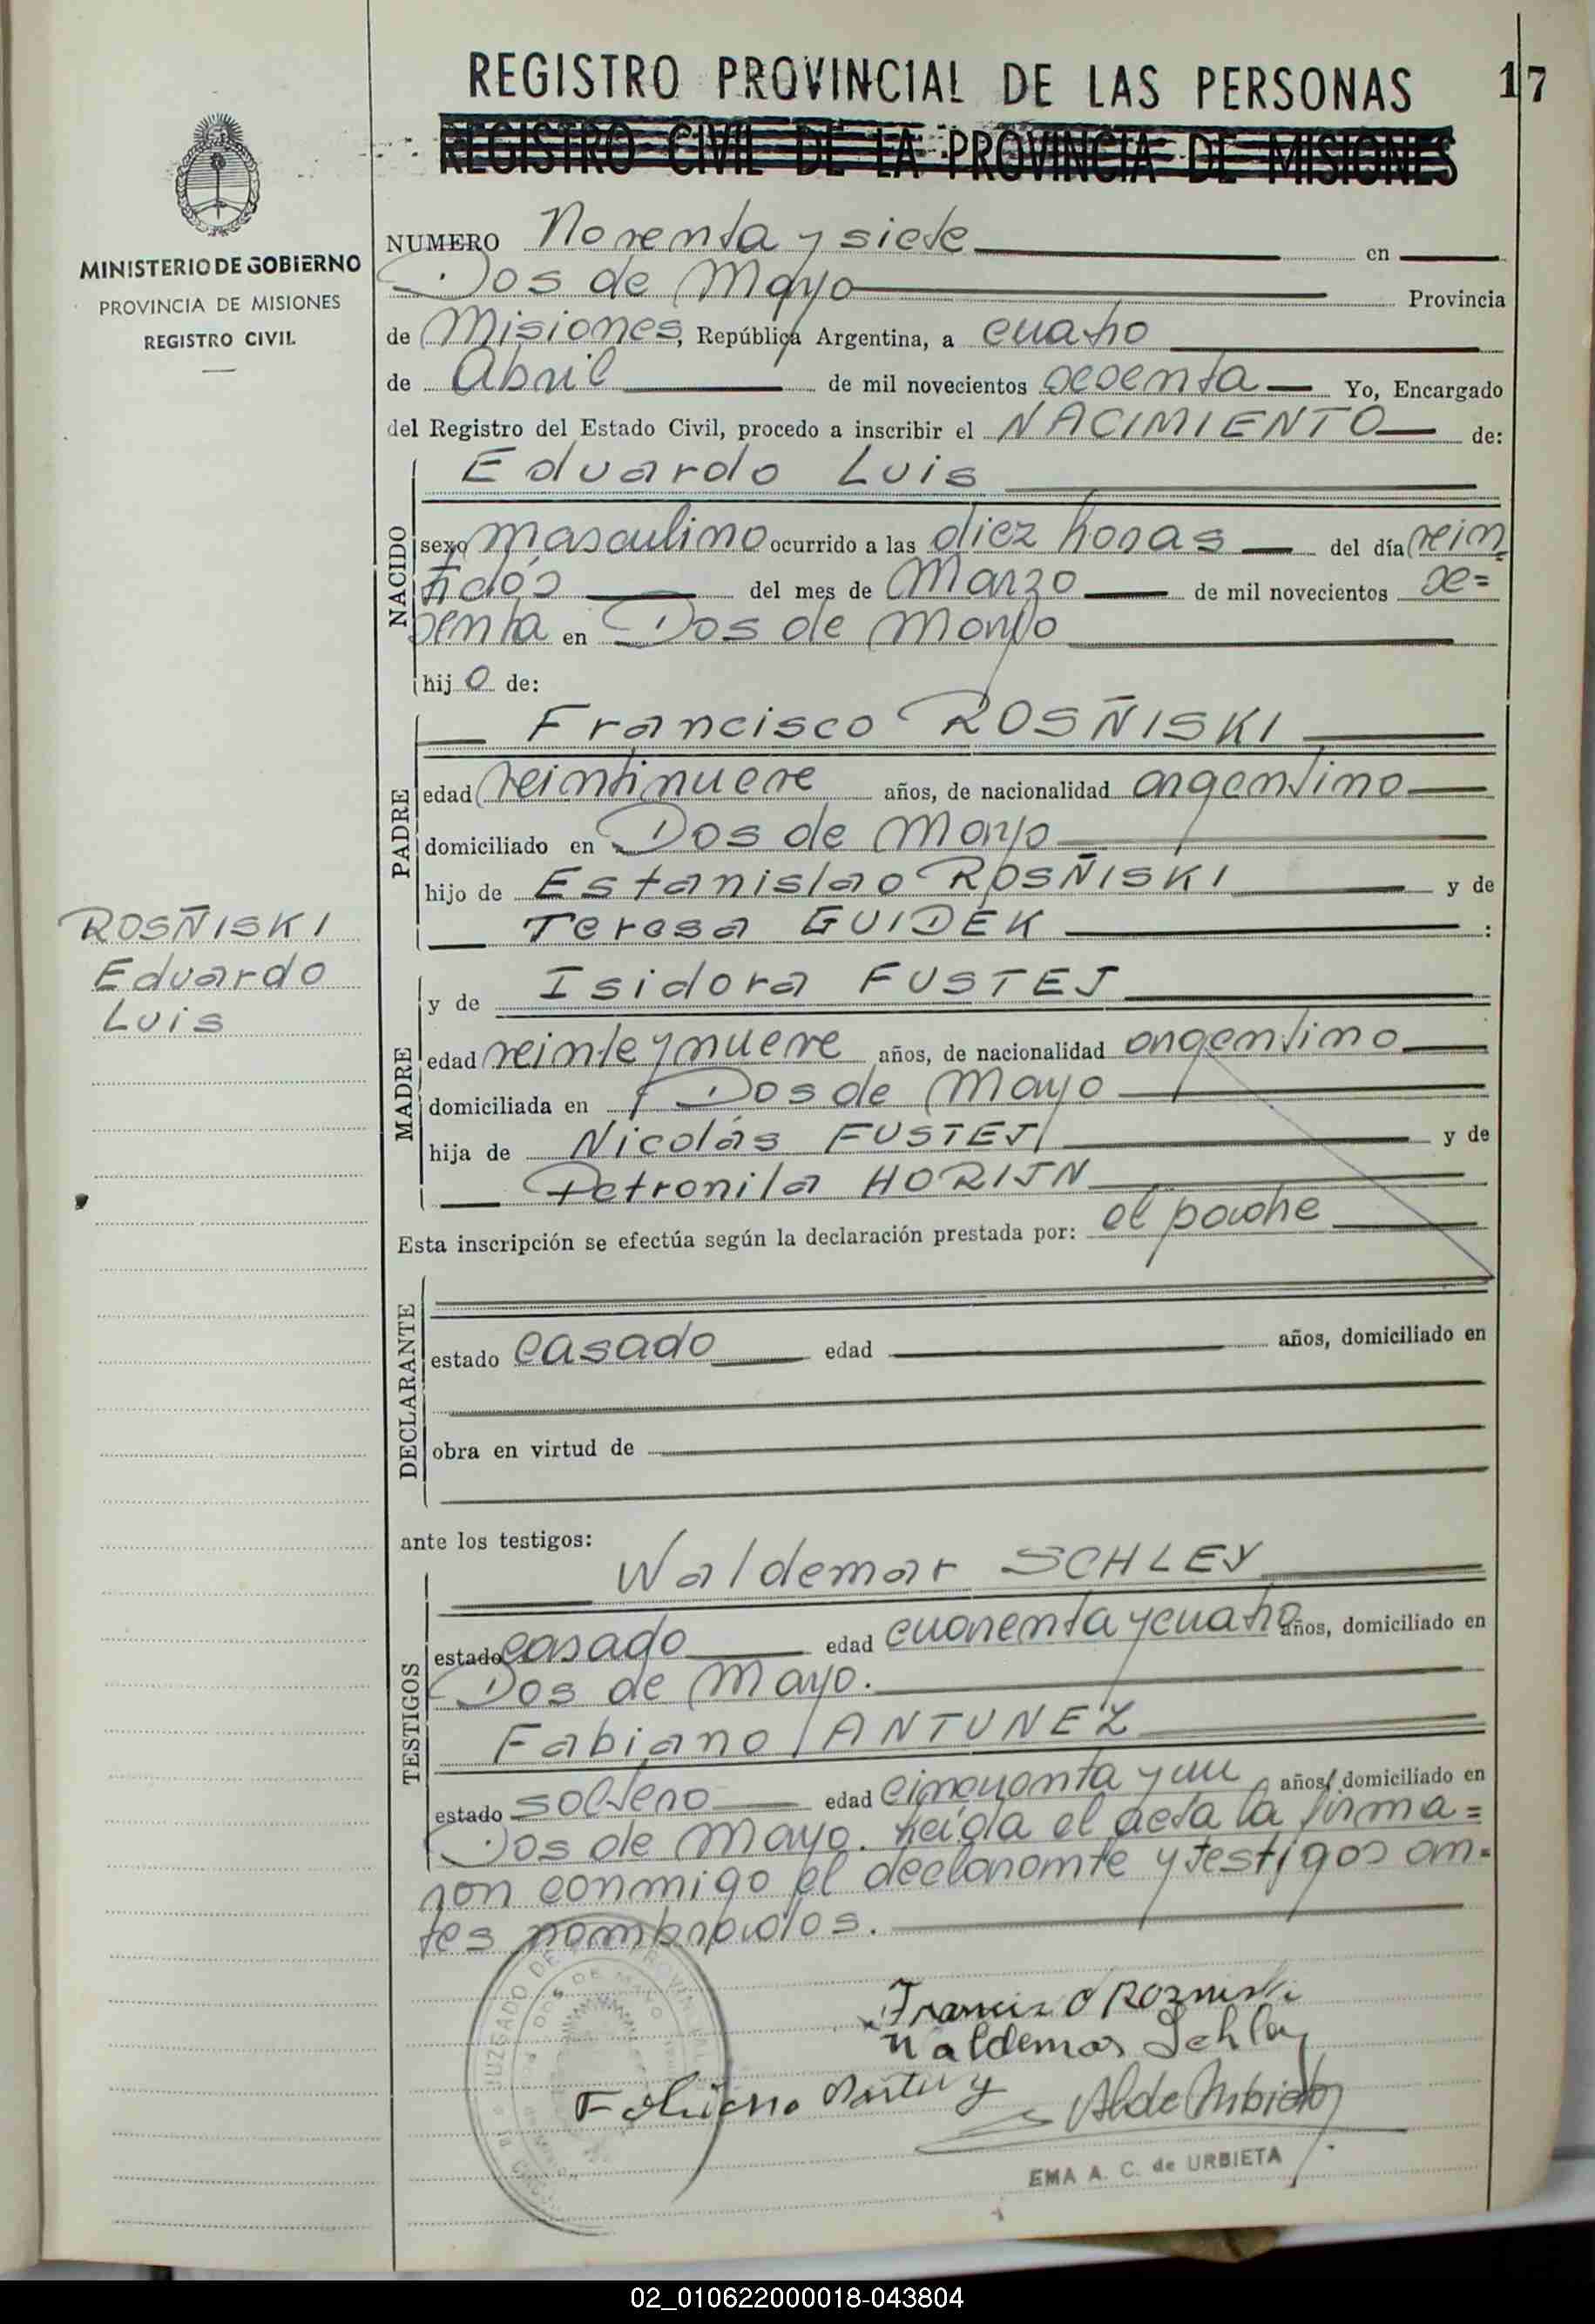 REGISTRO PROVINCIAL DE LAS PERSONAS 17
REGISTRO CIVIL DE LA PROVINCIA DE MISIONES
MINISTERIO DE GOBIERNO
PROVINCIA DE MISIONES
REGISTRO CIVIL
NUMERO Noventa y siete en
Dos de Mayo Provincia
de Misiones, República Argentina, a cuatro
de Abril de mil novecientos sesenta Yo, Encargado
del Registro del Estado Civil, procedo a inscribir el NACIMIENTO de:
NACIDO
Eduardo Luis
sexo masculino ocurrido a las diez horas del día vein=
tidós del mes de Marzo de mil novecientos se=
senta en Dos de Mayo
hijo de:
PADRE
Francisco ROSÑISKI
edad veintinueve años, de nacionalidad argentino
domiciliado en Dos de Mayo
hijo de Estanislao ROSÑISKI y de
Teresa GUIDEK :
ROSÑISKI
Eduardo
Luis
MADRE
y de Isidora FUSTEJ
edad veinte y nueve años, de nacionalidad argentino
domiciliada en Dos de Mayo
hija de Nicolás FUSTEJ y de
Petronila HORIJN
Esta inscripción se efectúa según la declaración prestada por: el padre
DECLARANTE
estado casado edad años, domiciliado en
obra en virtud de
ante los testigos:
TESTIGOS
Waldemar SCHLEY
estado casado edad cuarenta y cuatro años, domiciliado en
Dos de Mayo.
Fabiano ANTUNEZ
estado soltero edad cincuenta y un años, domiciliado en
Dos de Mayo. Leída el acta la firma=
ron conmigo el declarante y testigos an=
tes nombrados.
JUZGADO DE
DOS DE MAYO
Waldemar Schley
EMA A. C. de URBIETA
02_010622000018-043804